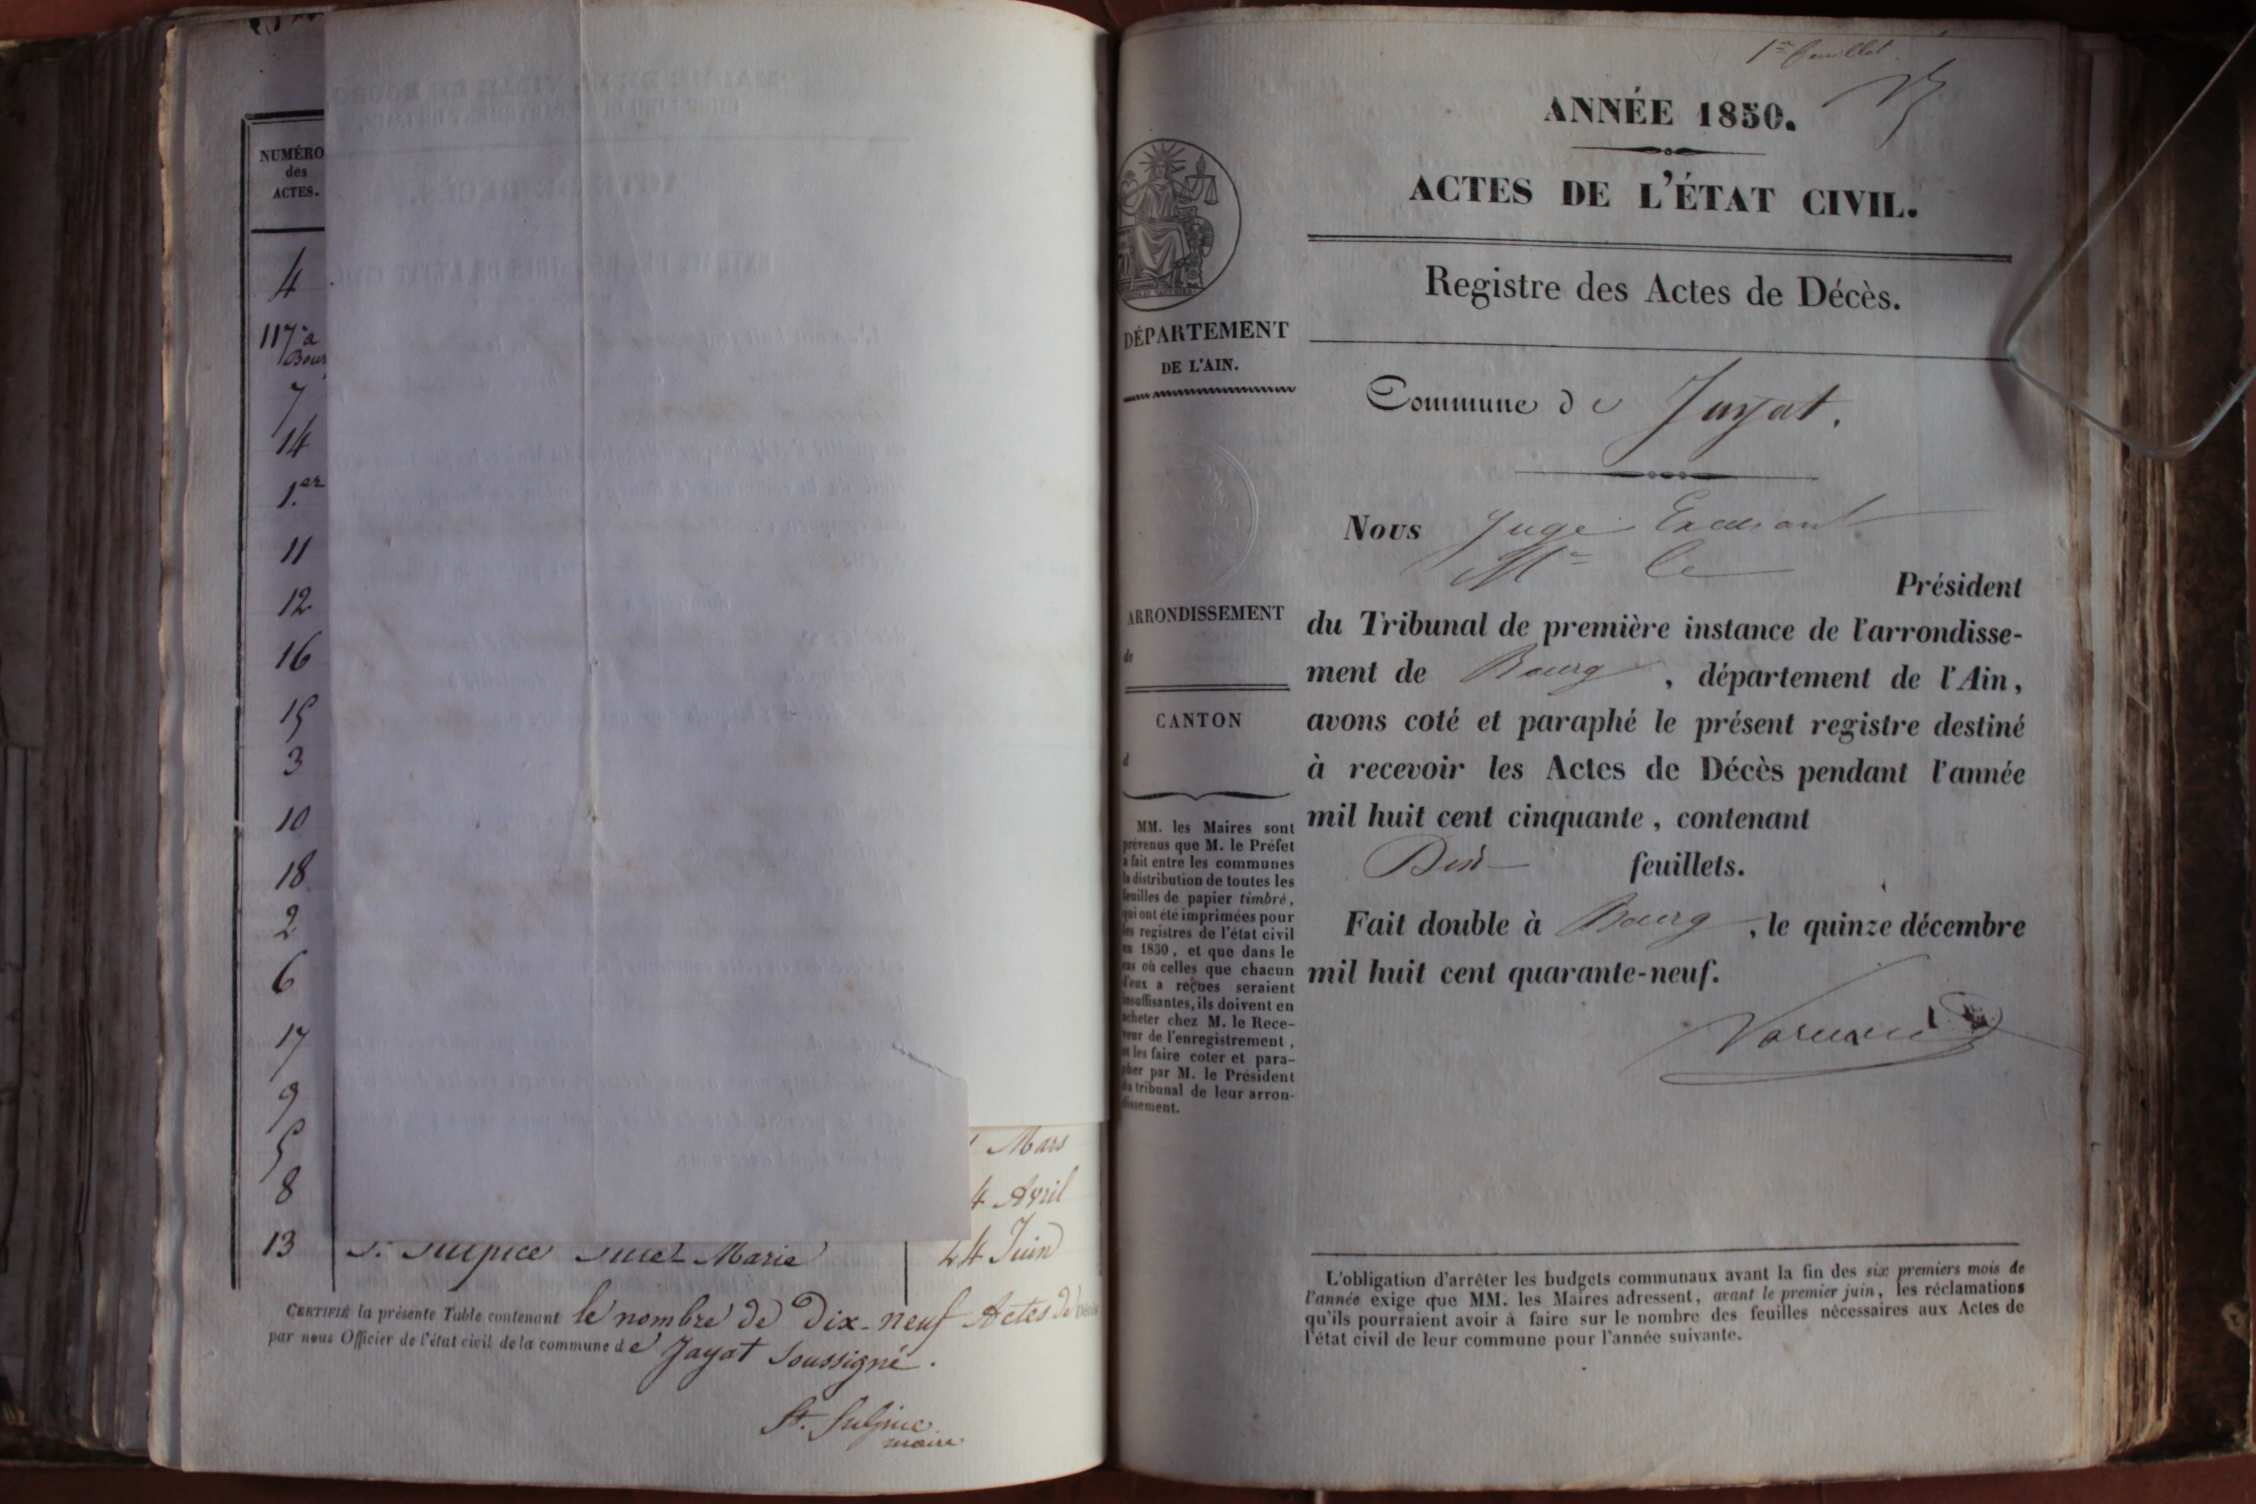 NUMÉRO
des
ACTES.
4
117 à
Bour
7
14
1.er
11
12
16
15
3
10
18
2
6
17
9
5
8
13
Mars
4 Avril
St Sulpice Marie
24 Juin
CERTIFIÉ la présente Table contenant le nombre de Dix-neuf Actes de Décès
par nous Officier de l'état civil de la commune de Jayat Soussigné.
St. Sulpice
maire
1er feuillet
ANNÉE 1850.
ACTES DE L'ÉTAT CIVIL.
Registre des Actes de Décès.
DÉPARTEMENT
DE L'AIN.
Commune de Jayat.
ARRONDISSEMENT
de
CANTON
d
MM. les Maires sont
prévenus que M. le Préfet
a fait entre les communes
la distribution de toutes les
feuilles de papier timbré,
qui ont été imprimées pour
les registres de l'état civil
en 1850, et que dans le
cas où celles que chacun
d'eux a reçues seraient
insuffisantes, ils doivent en
acheter chez M. le Rece-
veur de l'enregistrement,
et les faire coter et para-
pher par M. le Président
du tribunal de leur arron-
dissement.
Nous Juge
Mr le
Président
du Tribunal de première instance de l'arrondisse-
ment de Bourg, département de l'Ain,
avons coté et paraphé le présent registre destiné
à recevoir les Actes de Décès pendant l'année
mil huit cent cinquante, contenant
Dix feuillets.
Fait double à Bourg, le quinze décembre
mil huit cent quarante-neuf.
L'obligation d'arrêter les budgets communaux avant la fin des six premiers mois de
l'année exige que MM. les Maires adressent, avant le premier juin, les réclamations
qu'ils pourraient avoir à faire sur le nombre des feuilles nécessaires aux Actes de
l'état civil de leur commune pour l'année suivante.